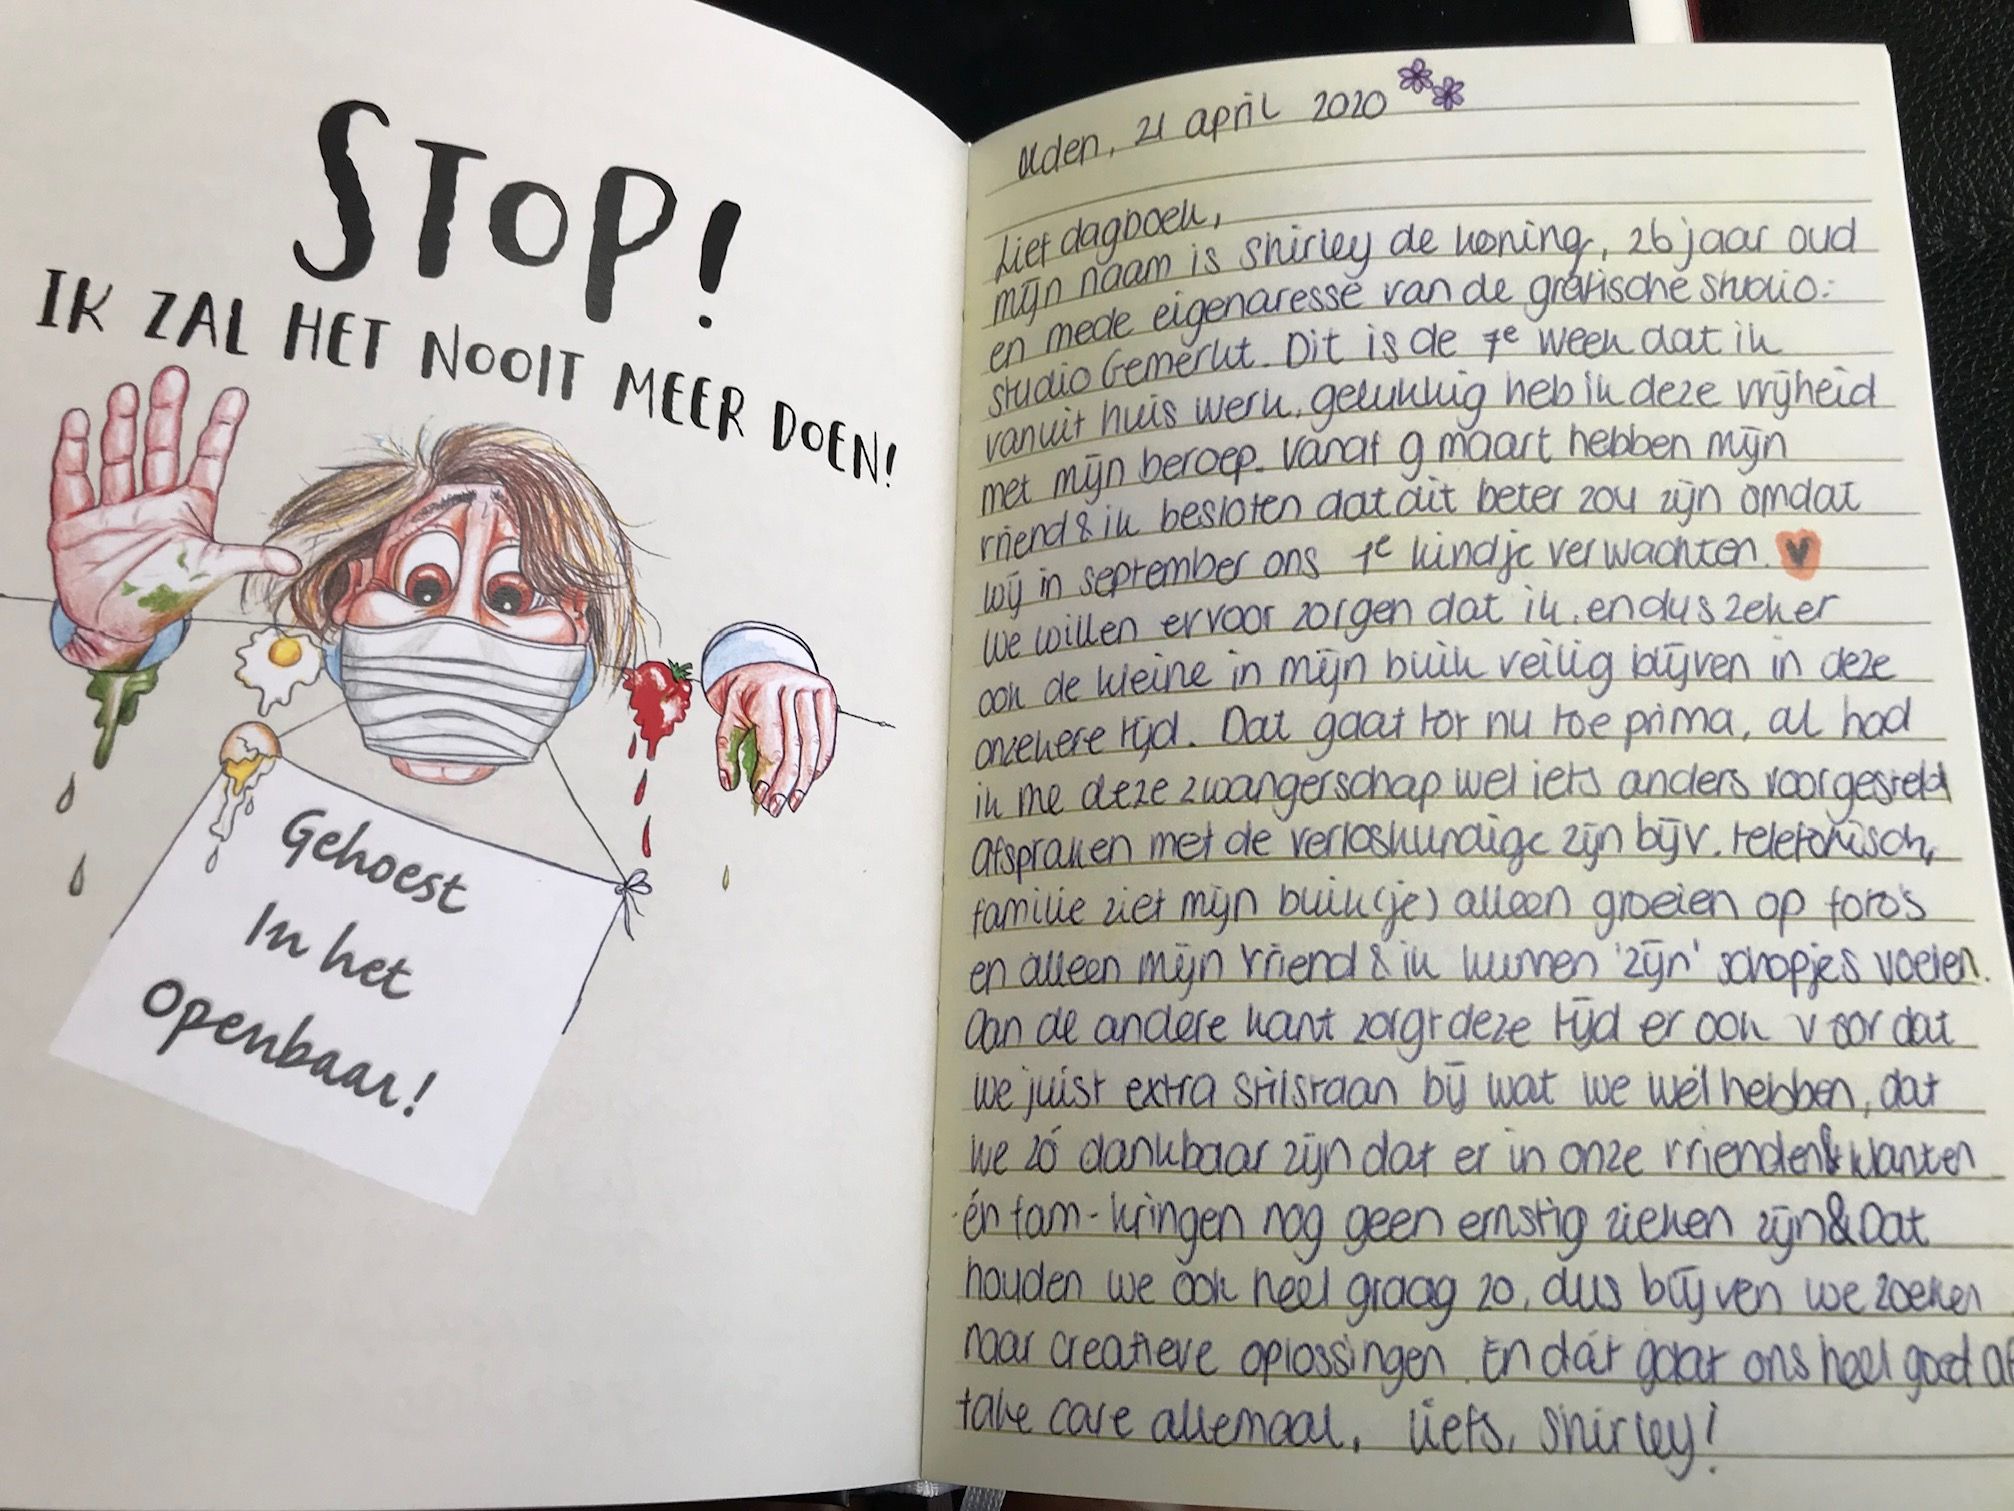 STOP!
IK ZAL HET NOOIT MEER DOEN!
Gehoest
In het
openbaar!
Uden, 21 april 2020
Lief dagboek,
mijn naam is Shirley de Koning, 26 jaar oud
en mede eigenaresse van de grafische studio:
studio Gemerkt. Dit is de 7e week dat ik
vanuit huis werk, gelukkig heb ik deze vrijheid
met mijn beroep. Vanaf 9 maart hebben mijn
vriend & ik besloten dat dit beter zou zijn omdat
wij in september ons 1e kindje verwachten.
We willen ervoor zorgen dat ik, en dus zeker
ook de kleine in mijn buik veilig blijven in deze
onzekere tijd. Dat gaat tot nu toe prima, al had
ik me deze zwangerschap wel iets anders voorgesteld
Afspraken met de verloskundige zijn bijv. telefonisch,
familie ziet mijn buik(je) alleen groeien op foto's
en alleen mijn vriend & ik kunnen 'zijn' schopjes voelen.
Aan de andere kant zorgt deze tijd er ook voor dat
we juist extra stilstaan bij wat we wél hebben, dat
we zó dankbaar zijn dat er in onze vrienden & klanten
én fam-kringen nog geen ernstig zieken zijn & Dat
houden we ook heel graag zo, dus blijven we zoeken
naar creatieve oplossingen. En dát gaat ons heel goed af
take care allemaal, liefs, Shirley!